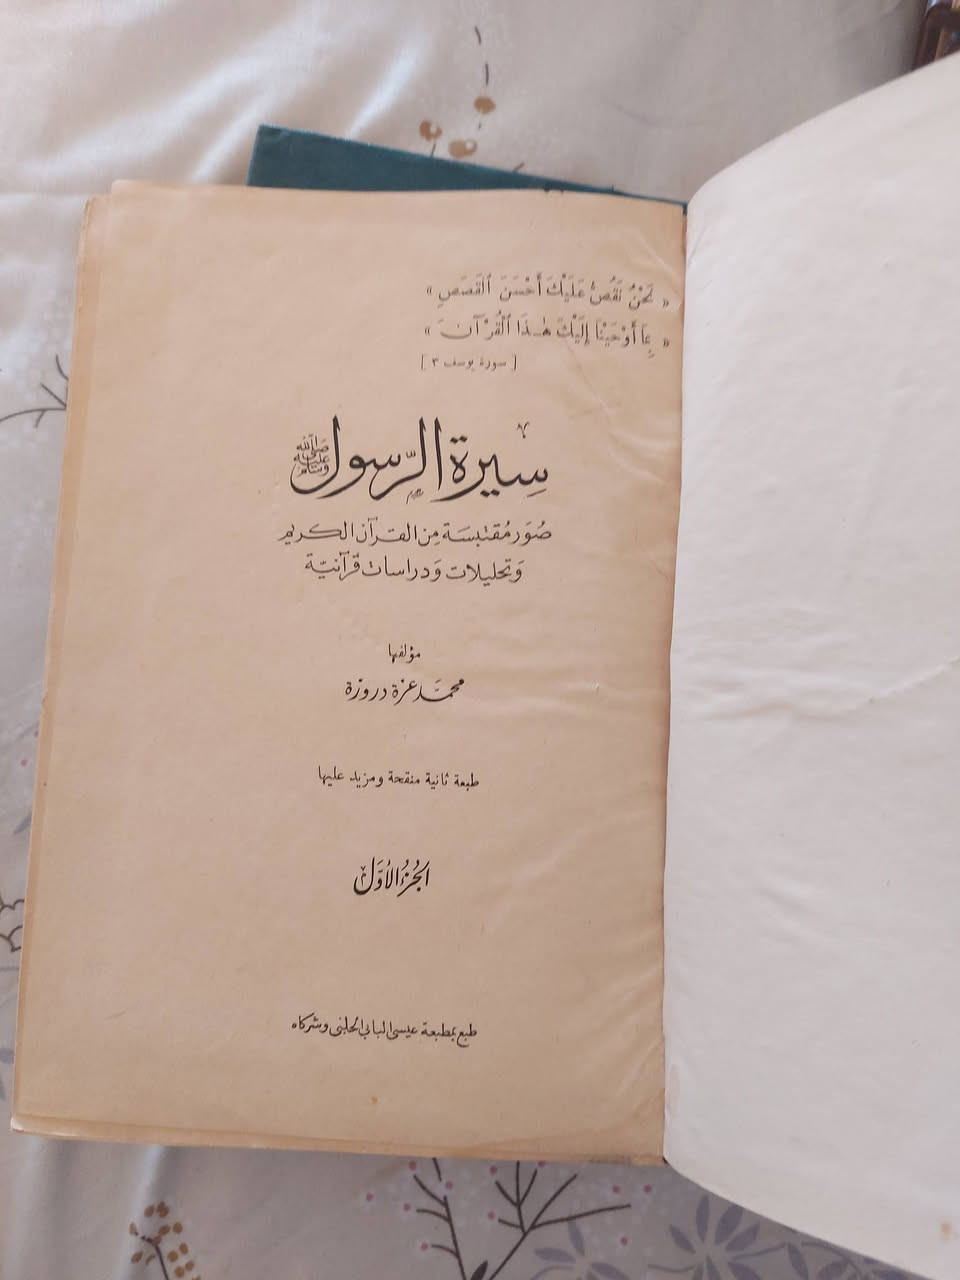 « نَحْنُ نَقُصُّ عَلَيْكَ أَحْسَنَ ٱلْقَصَصِ »
« بِمَا أَوْحَيْنَا إِلَيْكَ هٰذَا ٱلْقُرْآنَ »
[ سورة يوسف ٣ ]
سِيرة الرّسول صَلَّى اللَّه عَلَيْهِ وَسَلَّم
صُوَر مُقتبسَة مِن القرآن الكريم
وَتحليلات وَدراسات قرآنيّة
مؤلفها
محمَّد عزة دروزة
طبعة ثانية منقحة ومزيد عليها
الجُزءُ الأوَّل
طبع بمطبعة عيسى البابى الحلبى وشركاه